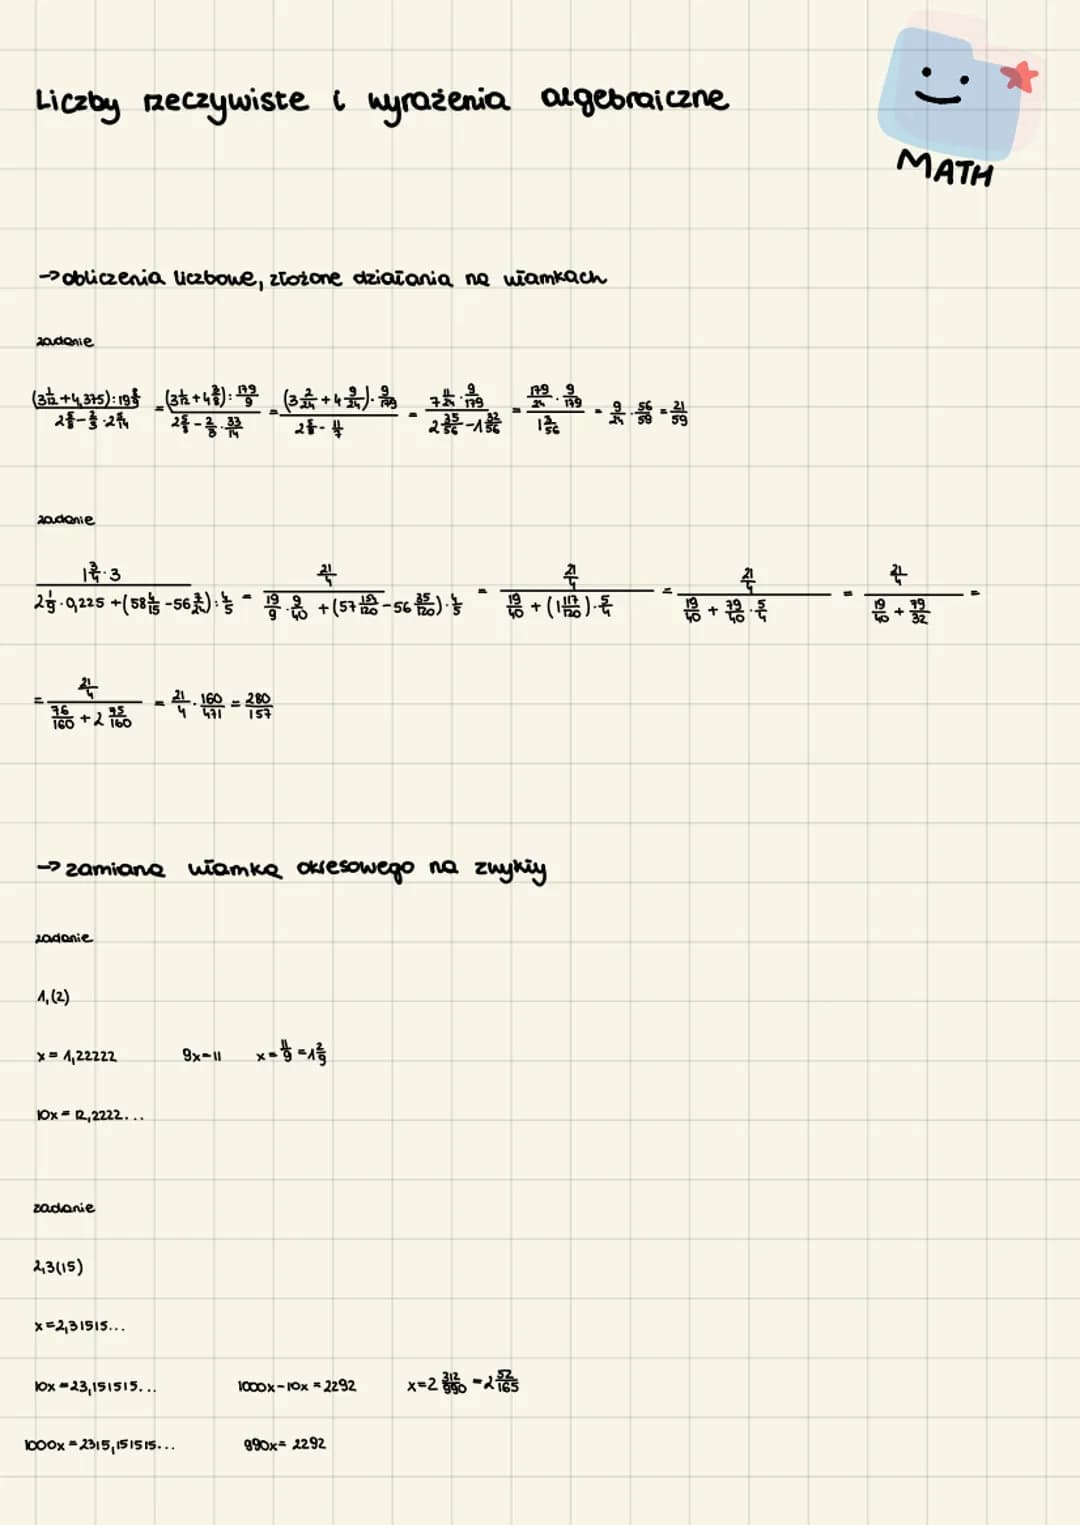 Liczby rzeczywiste i wyrażenia algebraiczne
MATH
→ obliczenia liczbowe, złożone działania na ułamkach
zadanie
(3 1/12 + 4,375) : 19 8/9 / 2 5/8 - 2/3 · 2 5/14 = (3 1/12 + 4 3/8) : 179/9 / 2 5/8 - 2/3 · 33/14 = (3 2/24 + 4 9/24) · 9/179 / 2 5/8 - 11/7 = 7 11/24 · 9/179 / 2 35/56 - 1 32/56 = 179/24 · 9/179 / 1 3/56 = 9/24 · 56/59 = 21/59
zadanie
1 3/4 · 3 / 2 1/9 · 0,225 + (58 4/15 - 56 7/24) : 4/5 = 21/4 / 19/9 · 9/40 + (57 152/120 - 56 35/120) : 4/5 = 21/4 / 19/40 + (1 117/120) · 5/4 = 21/4 / 19/40 + 79/40 · 5/4 = 21/4 / 19/40 + 79/32 =
= 21/4 / 76/160 + 2 75/160 = 21/4 · 160/471 = 280/157
→ zamiana ułamka okresowego na zwykły
zadanie
1,(2)
x = 1,22222 9x = 11 x = 11/9 = 1 2/9
10x = 12,2222...
zadanie
2,3(15)
x = 2,31515...
10x = 23,151515... 1000x - 10x = 2292 x = 2 312/990 = 2 52/165
1000x = 2315,151515... 990x = 2292